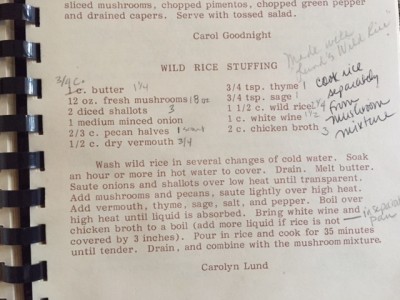 sliced mushrooms, chopped pimentos, chopped green pepper
and drained capers. Serve with tossed salad.
Carol Goodnight
Made with
Wild Rice
WILD RICE STUFFING
3/4 c.
1 c. butter 1 1/4
12 oz. fresh mushrooms 18 oz
2 diced shallots 3
1 medium minced onion
2/3 c. pecan halves 1
1/2 c. dry vermouth 3/4
3/4 tsp. thyme 1
3/4 tsp. sage 1
1 1/2 c. wild rice
1 c. white wine 1 1/2
2 c. chicken broth 3
cook rice
separately
from
mushroom
mixture
Wash wild rice in several changes of cold water. Soak
an hour or more in hot water to cover. Drain. Melt butter.
Saute onions and shallots over low heat until transparent.
Add mushrooms and pecans, saute lightly over high heat.
Add vermouth, thyme, sage, salt, and pepper. Boil over
high heat until liquid is absorbed. Bring white wine and
in separate
pan
chicken broth to a boil (add more liquid if rice is not
covered by 3 inches). Pour in rice and cook for 35 minutes
until tender. Drain, and combine with the mushroom mixture.
Carolyn Lund